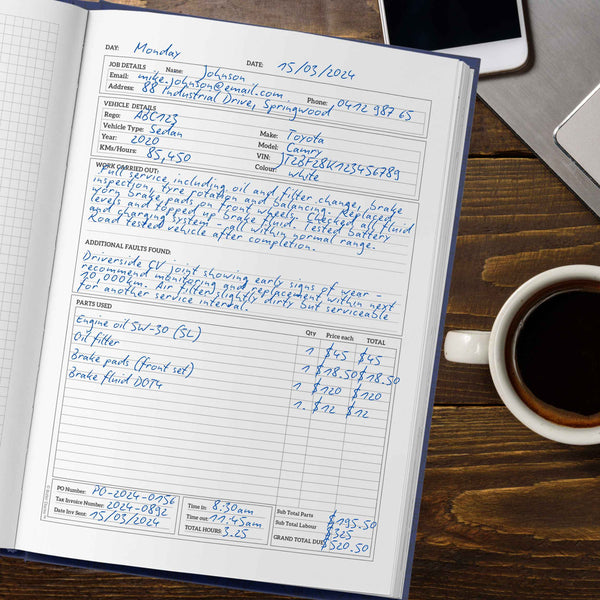 DAY: Monday DATE: 15/03/2024
JOB DETAILS Name: Johnson
Email: mike.johnson@email.com Phone: 0412 987 65
Address: 88 Industrial Drive, Springwood
VEHICLE DETAILS
Rego: ABC123 Make: Toyota
Vehicle Type: Sedan Model: Camry
Year: 2020 VIN: JT2BF28K123456789
KMs/Hours: 85,450 Colour: white
WORK CARRIED OUT:
Full service including oil and filter change, brake
inspection, tyre rotation and balancing. Replaced
worn brake pads on front wheels. Checked all fluid
levels and topped up brake fluid. Tested battery
and charging system - all within normal range.
Road tested vehicle after completion.
ADDITIONAL FAULTS FOUND:
Driverside CV joint showing early signs of wear -
recommend monitoring and replacement within next
20,000km. Air filter slightly dirty but serviceable
for another service interval.
PARTS USED Qty Price each TOTAL
Engine oil 5W-30 (5L) 1. $45 $45
Oil filter 1 $18.50 $18.50
Brake pads (front set) 1. $120 $120
Brake fluid DOT4 1. $12 $12
PO Number: PO-2024-0156
Tax Invoice Number: 2024-0892
Date Inv Sent: 15/03/2024
Time in: 8.30am
Time out: 11.45am
TOTAL HOURS: 3.25
Sub Total Parts $195.50
Sub Total Labour $325
GRAND TOTAL DUE $520.50